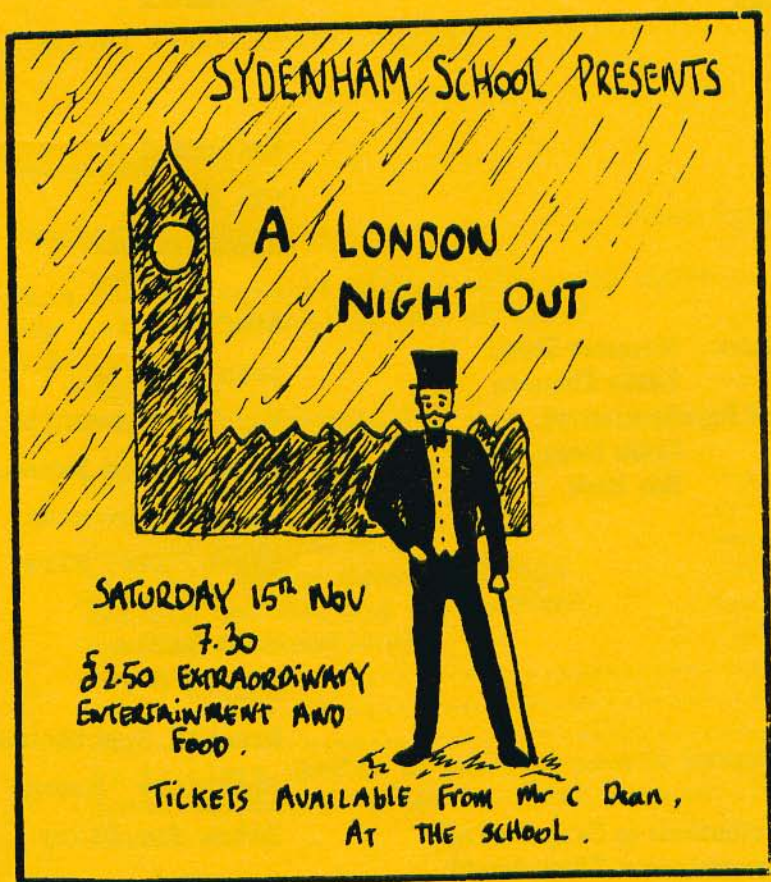 SYDENHAM SCHOOL PRESENTS
A LONDON
NIGHT OUT
SATURDAY 15th NOV
7.30
£2.50 EXTRAORDINARY
ENTERTAINMENT AND
FOOD.
TICKETS AVAILABLE FROM Mr C Dean,
AT THE SCHOOL.